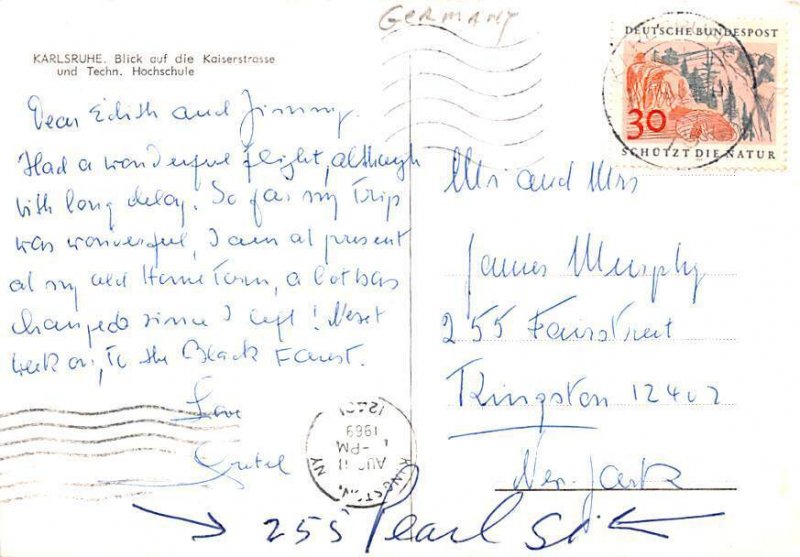 GERMANY
KARLSRUHE. Blick auf die Kaiserstrasse
und Techn. Hochschule
DEUTSCHE BUNDESPOST
30
SCHÜTZT DIE NATUR
Dear Edith and Jimmy.
Had a wonderful flight, although
with long delay. So far my Trip
was wonderful, I am at present
at my old Home Town, a lot has
changed since I left! Next
week on, to the Black Forest.
Love
Gretel
Mr and Mrs
James Murphy
255 Fairstreet
Kingston 12402
New York
KINGSTON, NY
AUG 11
-PM
1969
12401
255 Pearl St.